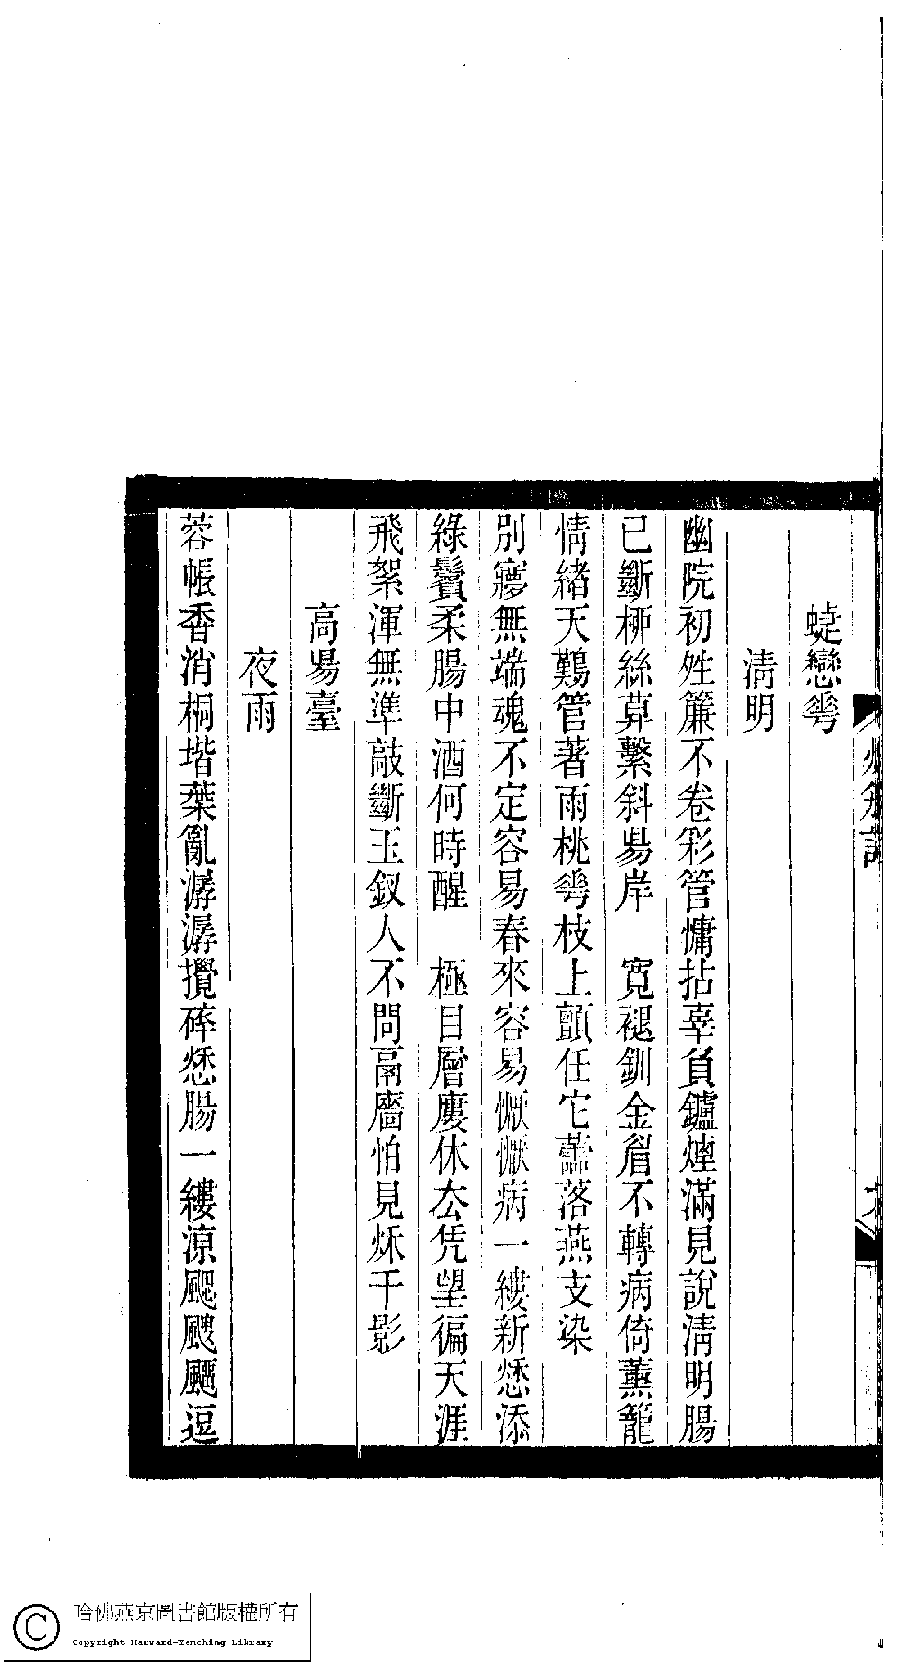 蜨戀花
清明
幽院初姓簾不卷彩管慵拈辜負鑪煙滿見說清明腸
已斷桺絲莫繫斜昜岸　寬褪釧金眉不轉病倚薰籠
情緒天難管著雨桃花枝上顫任它蘦落燕支染
別寱無端魂不定容易春來容易懨懨病一縷新愁添
綠鬢柔腸中酒何時醒　極目層廔休去凭朢徧天涯
飛絮渾無準敲斷玉釵人不問鬲廧怕見烁千影
高昜臺
夜雨
蓉帳香消桐堦葉亂潺潺攪碎愁腸一縷涼颸颼颸逗
哈佛燕京圖書館版權所有
Copyright Harvard-Yenching Library